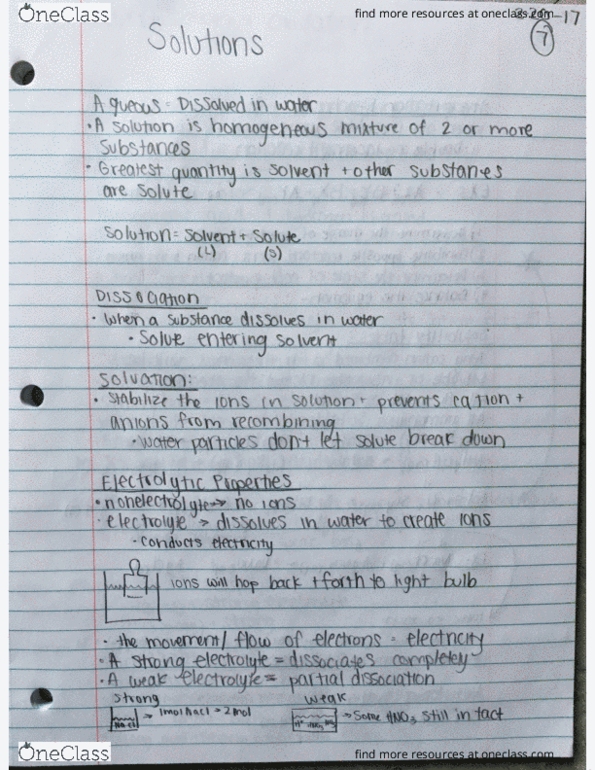 OneClass
find more resources at oneclass.com
-17
7
Solutions
Aqueous = Dissolved in water
• A solution is homogeneous mixture of 2 or more
Substances
• Greatest quantity is solvent + other substances
are solute
Solution = Solvent + Solute
(L) (S)
Dissociation
• when a substance dissolves in water
• Solute entering solvent
Solvation:
• Stabilize the ions in solution + prevents cation +
anions from recombining
• water particles don't let solute break down
Electrolytic Properties
• nonelectrolyte → no ions
• electrolyte → dissolves in water to create ions
• conducts electricity
ions will hop back + forth to light bulb
• the movement/flow of electrons = electricity
• A strong electrolyte = dissociates completely
• A weak electrolyte = partial dissociation
Strong weak
NaCl → 1mol NaCl = 2mol → Some HNO₃ still in tact
OneClass
find more resources at oneclass.com